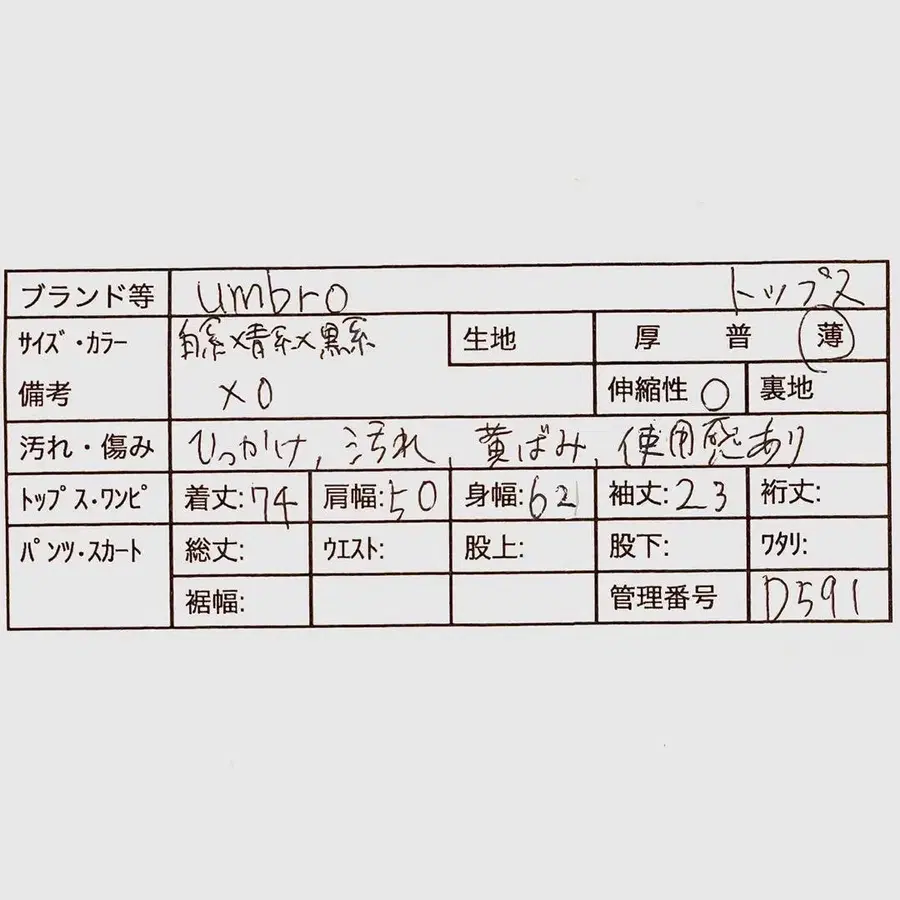 ブランド等 umbro トップス
サイズ・カラー 白系×青系×黒系 生地 厚 普 薄
備考 XO 伸縮性 ○ 裏地
汚れ・傷み ひっかけ, 汚れ, 黄ばみ, 使用感あり
トップス・ワンピ 着丈:74 肩幅:50 身幅:62 袖丈:23 裄丈:
パンツ・スカート 総丈: ウエスト: 股上: 股下: ワタリ:
裾幅: 管理番号 D591